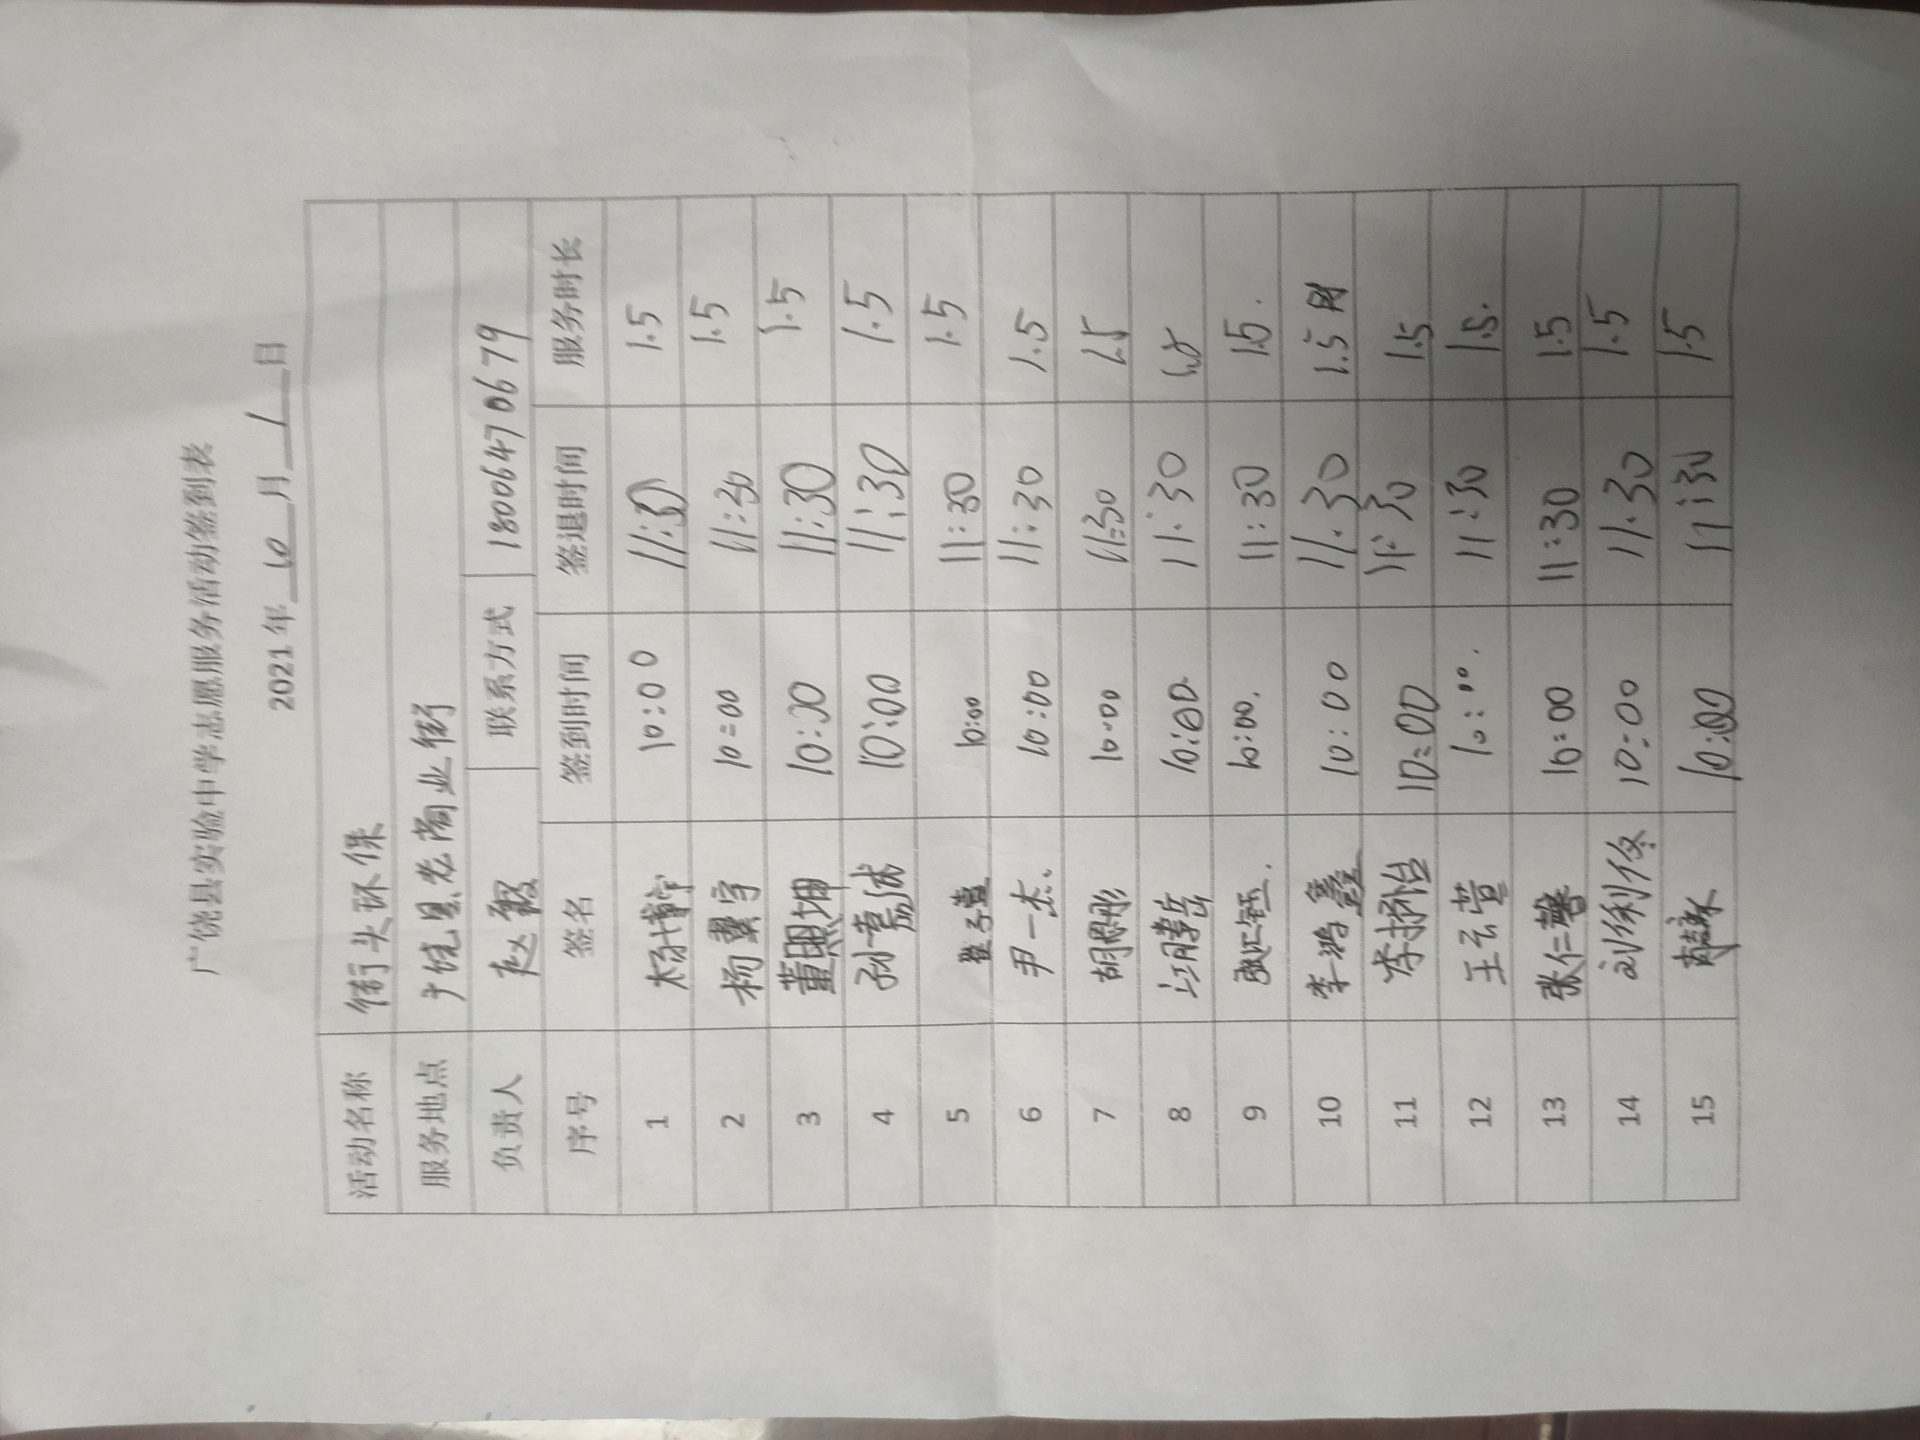 广饶县实验中学志愿服务活动签到表
2021年 10 月 1 日
活动名称 街头环保
服务地点 广饶县老商业街
负责人 赵毅 联系方式 18006470679
序号 签名 签到时间 签退时间 服务时长
1 10:00 11:30 1.5
2 杨冀宇 10:00 11:30 1.5
3 董照坤 10:00 11:30 1.5
4 孙嘉 10:00 11:30 1.5
5 10:00 11:30 1.5
6 尹一杰. 10:00 11:30 1.5
7 胡恩彤 10:00 11:30 1.5
8 江腾岳 10:00 11:30 1.5
9 张汇钰. 10:00. 11:30 1.5.
10 李鸿鑫 10:00 11:30 1.5时
11 李 10:00 11:30 1.5
12 王云萱 10:00. 11:30 1.5.
13 张仁馨 10:00 11:30 1.5
14 刘 10:00 11:30 1.5
15 10:00 11:30 1.5